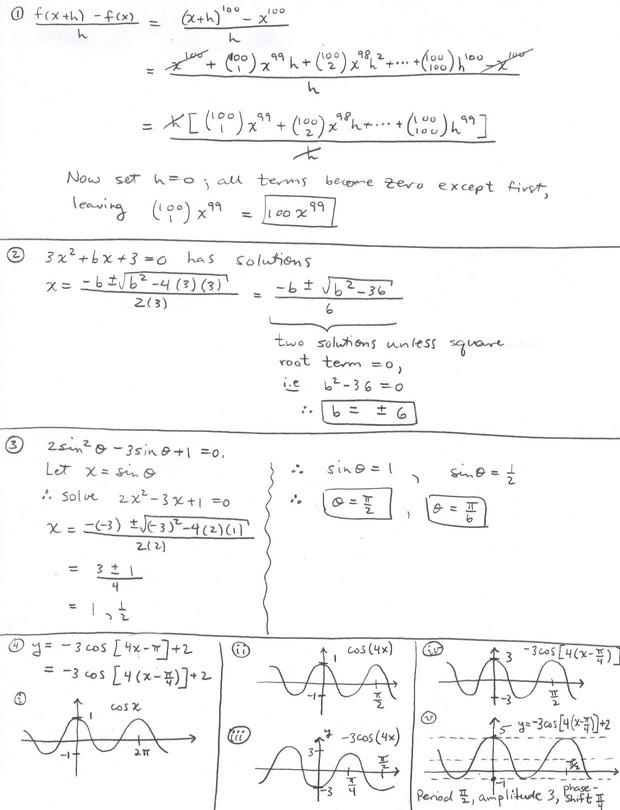 ① f(x+h) - f(x) / h = (x+h)^100 - x^100 / h
= x^100 + (100 1) x^99 h + (100 2) x^98 h^2 + ... + (100 100) h^100 - x^100 / h
= h [ (100 1) x^99 + (100 2) x^98 h + ... + (100 100) h^99 ] / h
Now set h=0; all terms become zero except first,
leaving (100 1) x^99 = 100 x^99
② 3x^2 + bx + 3 = 0 has solutions
x = -b ± √(b^2 - 4(3)(3)) / 2(3) = -b ± √(b^2 - 36) / 6
two solutions unless square
root term = 0,
i.e b^2 - 36 = 0
∴ b = ± 6
③ 2sin^2 θ - 3sin θ + 1 = 0.
Let x = sin θ
∴ solve 2x^2 - 3x + 1 = 0
x = -(-3) ± √((-3)^2 - 4(2)(1)) / 2(2)
= 3 ± 1 / 4
= 1, 1/2
∴ sin θ = 1, sin θ = 1/2
∴ θ = π/2, θ = π/6
④ y = -3 cos [4x - π] + 2
= -3 cos [4(x - π/4)] + 2
i cos x
1
-1
2π
ii cos(4x)
1
-1
π/2
iii y -3cos(4x)
3
-3
π/4
π/2
iv -3cos[4(x - π/4)]
3
-3
π/2
v 5 y = -3cos[4(x - π/4)] + 2
π/2
-1
Period π/2, amplitude 3, phase-shift π/4